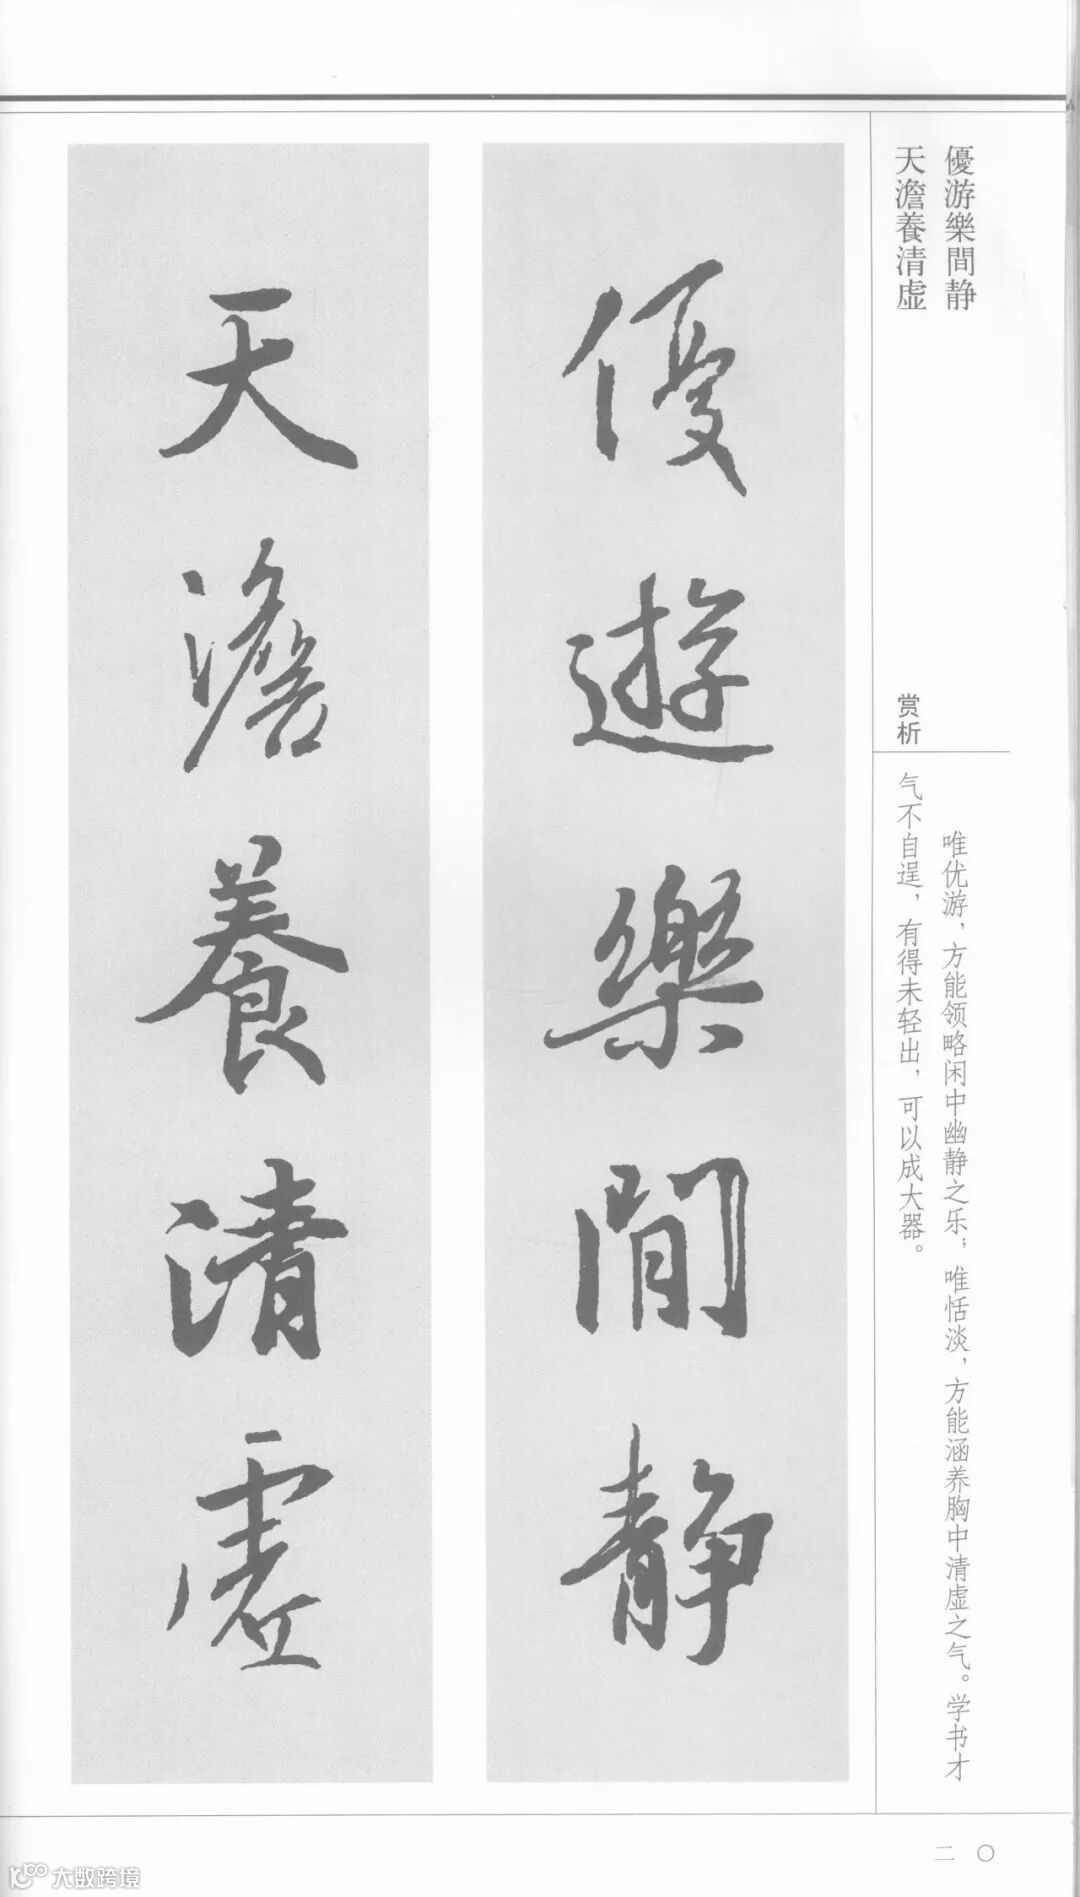 優游樂間静
天澹養清虚
赏析
唯优游，方能领略闲中幽静之乐；唯恬淡，方能涵养胸中清虚之气。学书才
气不自逞，有得未轻出，可以成大器。
優遊樂間静
天澹養清虚
二〇
大数跨境